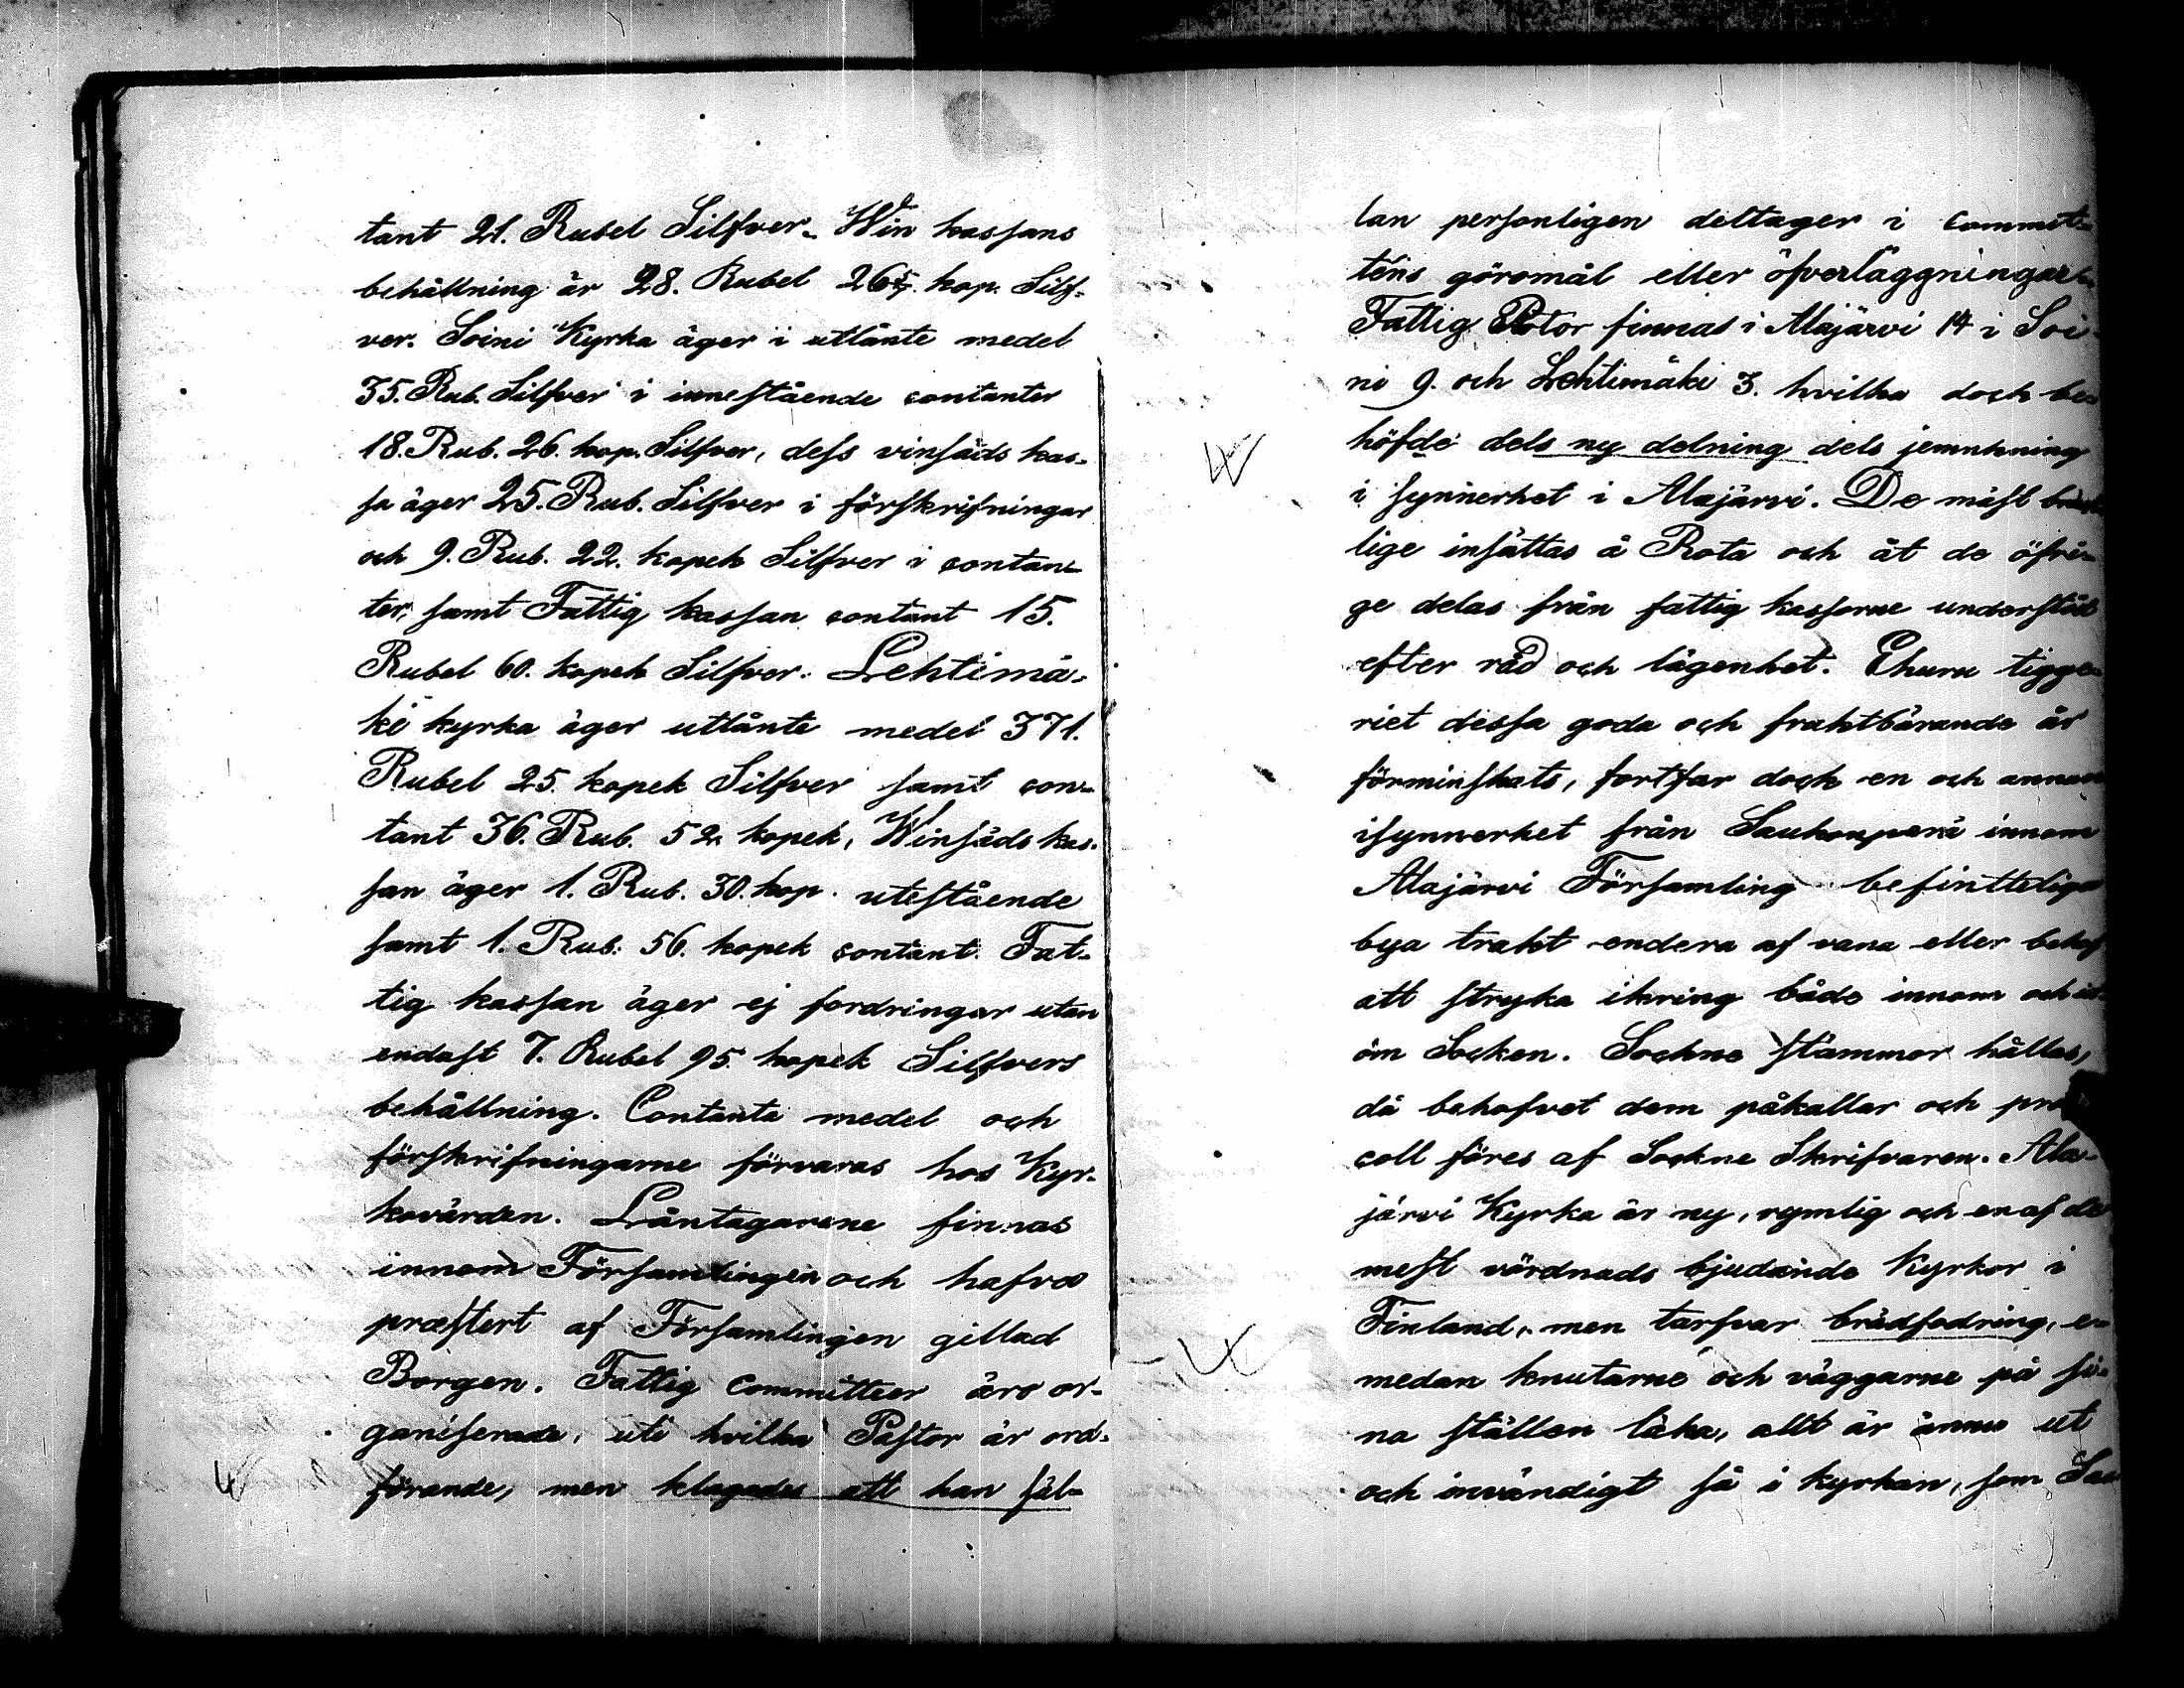 tant 21. Rubel Silfver. Win kassans
behållning är 28. Rubel 26 5/7. kop. Silf-
ver. Soini Kyrka äger i utlånte medel
35. Rub. Silfver i innestående contanter
18. Rub. 26. kop. Silfver, dess vinsäds kas-
sa äger 25. Rub. Silfver i förskrifningar
och 9. Rub. 22. kopek Silfver i contan-
ter, samt Fattig kassan contant 15.
Rubel 60. kopek Silfver. Lehtimä-
ki kyrka äger utlånte medel 371.
Rubel 25. kopek Silfver samt con-
tant 36. Rub. 52. kopek, Winsäds kas-
san äger 1. Rub. 30. kop. utestående
samt 1. Rub. 56. kopek contant. Fat-
tig kassan äger ej fordringar utan
endast 7. Rubel 95. kopek Silfvers
behållning. Contanta medel och
förskrifningarne förvaras hos Kyr-
kovärden. Låntagarene finnas
innom Församlingen och hafva
præstert af Församlingen gillad
Borgen. Fattig Committeer äro or-
ganiserade, uti hvilka Pastor är ord-
förande, men klagades att han säl-
lan personligen deltager i Commit-
téns göromål eller öfverläggningar.
Fattig Rotor finnas i Alajärvi 14 i Soi-
ni 9. och Lehtimäki 3. hvilka dock be-
höfde dels ny delning dels jemnkning
i synnerhet i Alajärvi. De mäst
lige insättas å Rota och åt de öfri-
ge delas från fattig kassorne understöd
efter råd och lägenhet. Ehuru tigge-
riet dessa goda och fruktbärande år
förminskats, fortfar dock en och annan
isynnerhet från Saukonperä innom
Alajärvi Församling befinteliga
bya trakt endera af vana eller behof
att stryka ikring både innom och ut-
om Socken. Sockne stämmor hållas,
då behofvet dem påkallar och pro
coll föres af Sockne Skrifvaren. Ala-
järvi Kyrka är ny, rymlig och en af de
mest vördnads bjudande Kyrkor i
Finland, men tarfvar brädfodring, e-
medan knutarne och väggarne på si-
na ställen läka, allt är ännu ut
och invändigt så i kyrkan, som Sac